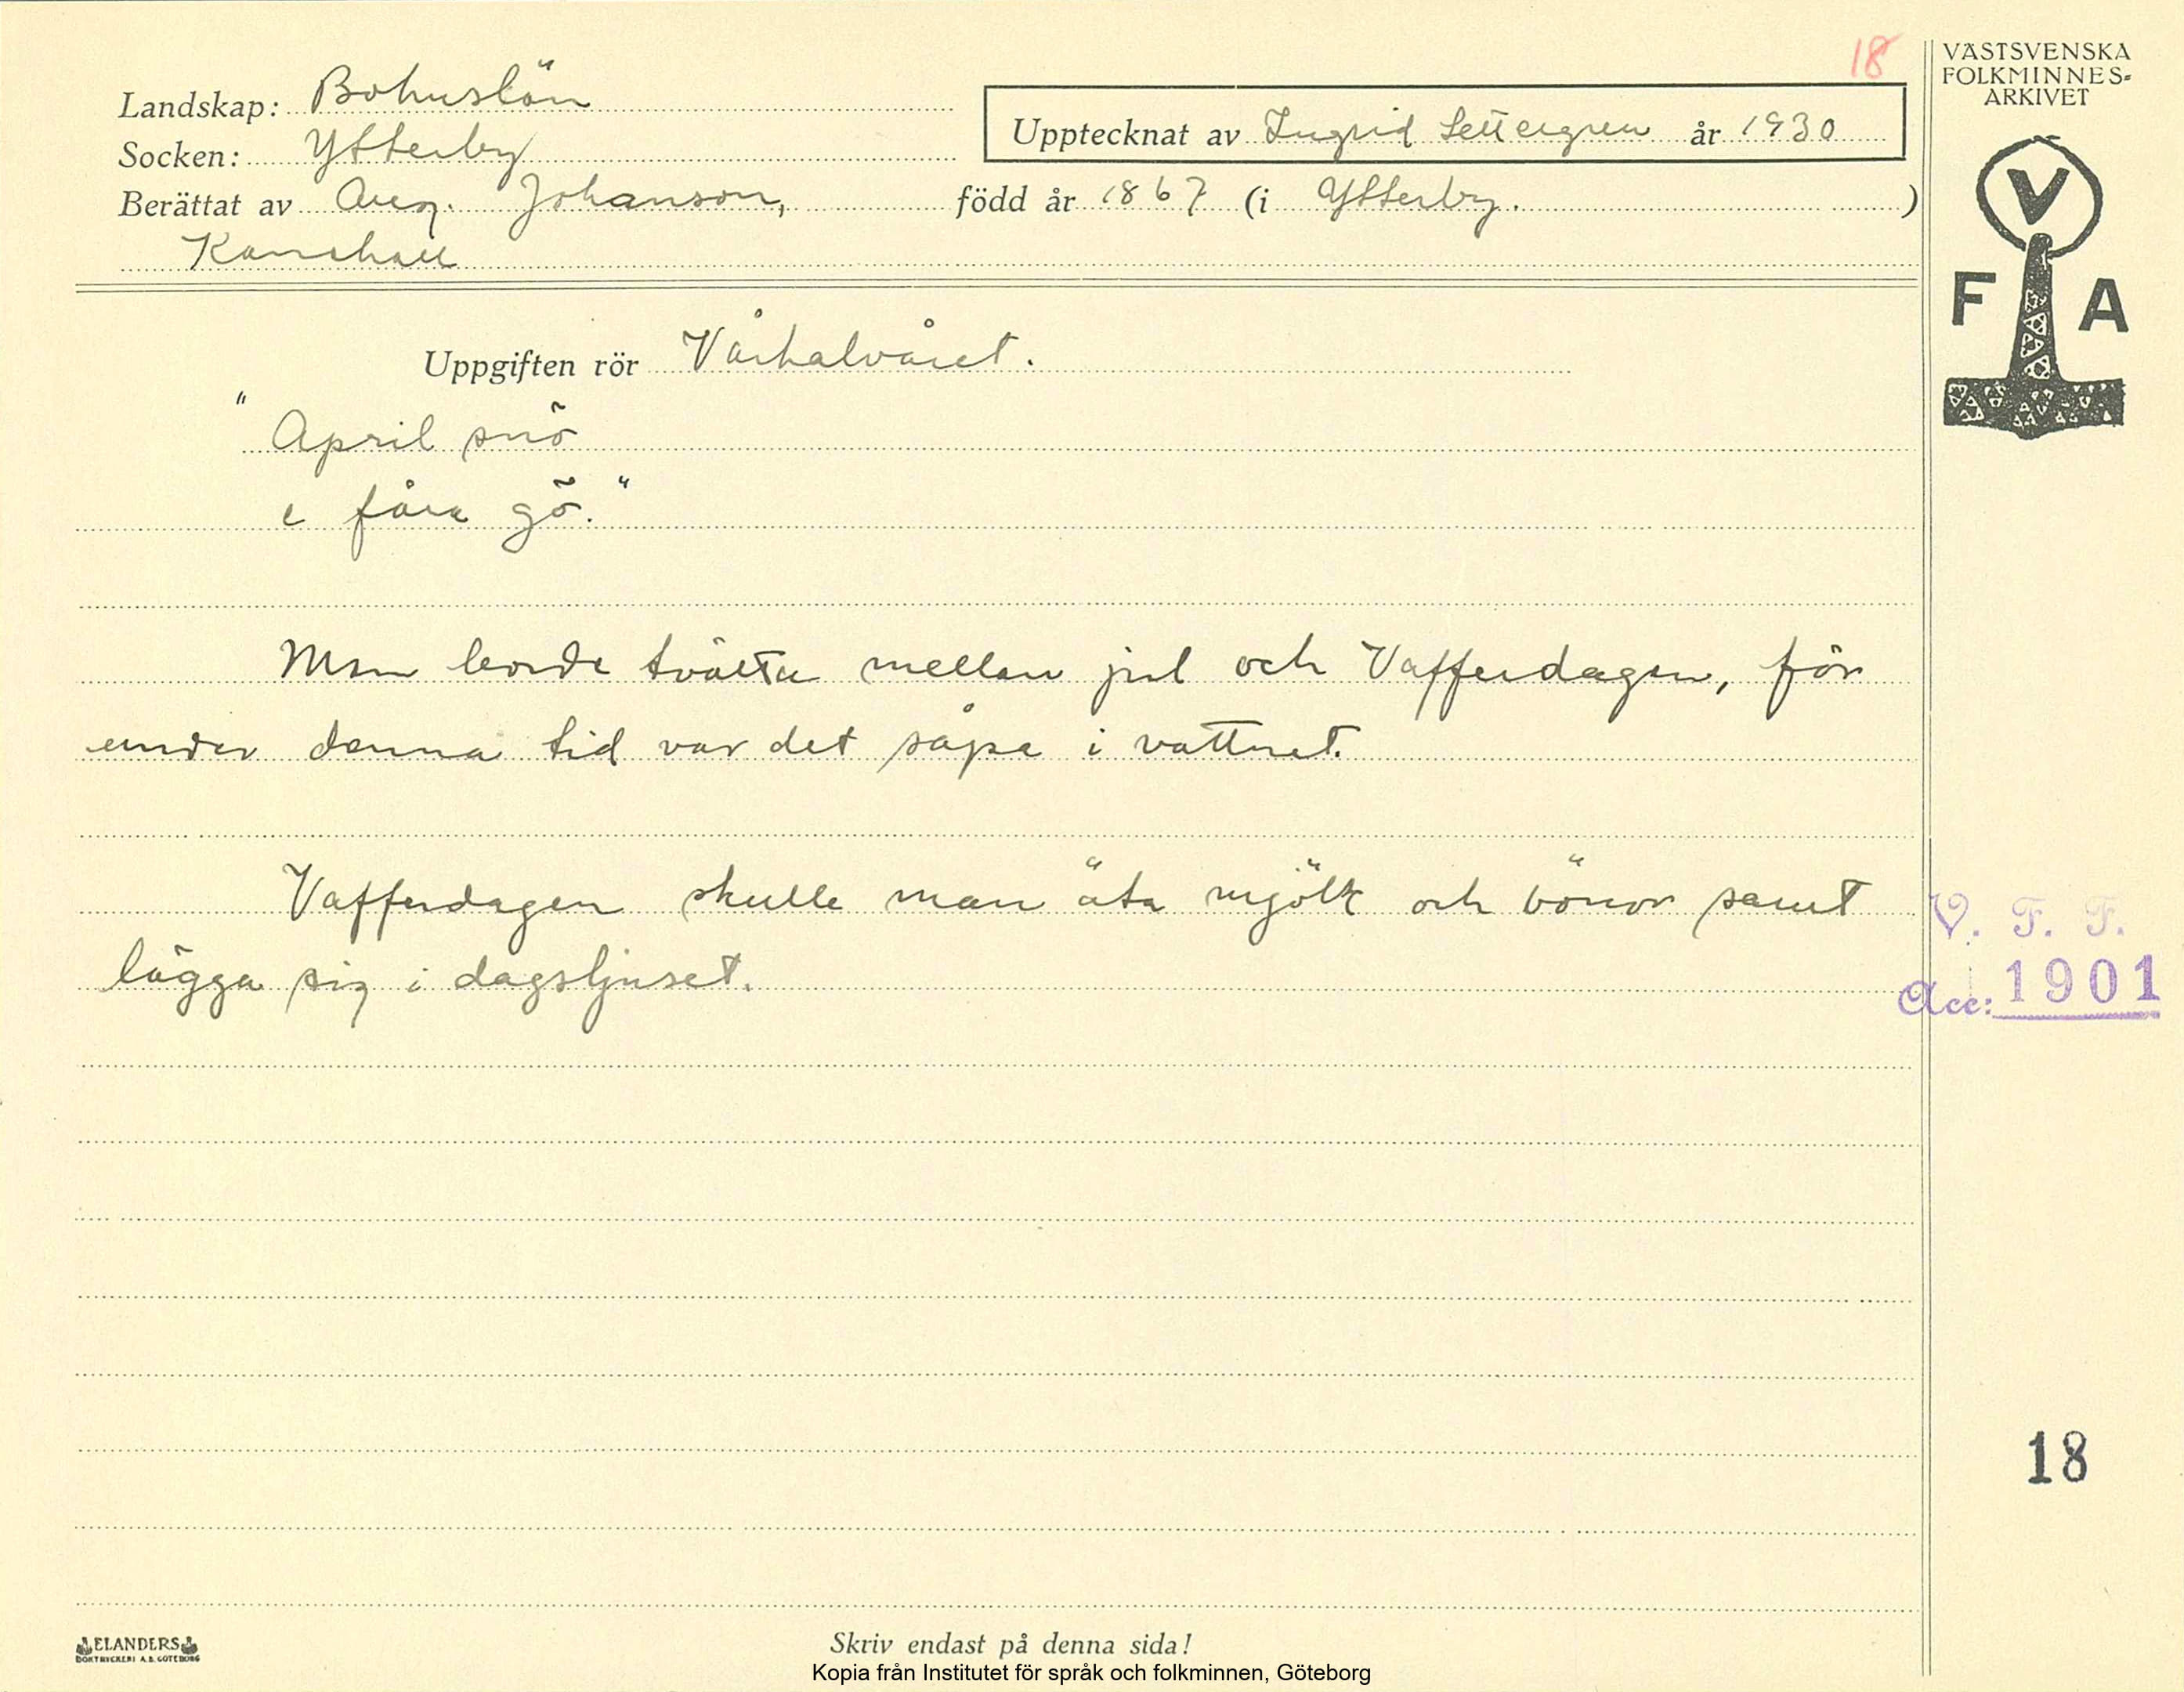 18
VÄSTSVENSKA
FOLKMINNES-
ARKIVET
Landskap: Bohuslän
Upptecknat av Ingrid Settergren år 1930
Socken: Ytterby
Berättat av Aug. Johanson, född år 1867 (i Ytterby. )
V
F A
Uppgiften rör Vårhalvåret.
"April snö
e fåra gö."
Man borde tvätta mellan jul och Vafferdagen, för
under denna tid var det såpa i vattnet.
Vafferdagen skulle man äta mjölk och bönor samt
lägga sig i dagsljuset.
V. F. F.
Acc: 1901
18
ELANDERS
BOKTRYCKERI A.B. GÖTEBORG
Skriv endast på denna sida!
Kopia från Institutet för språk och folkminnen, Göteborg